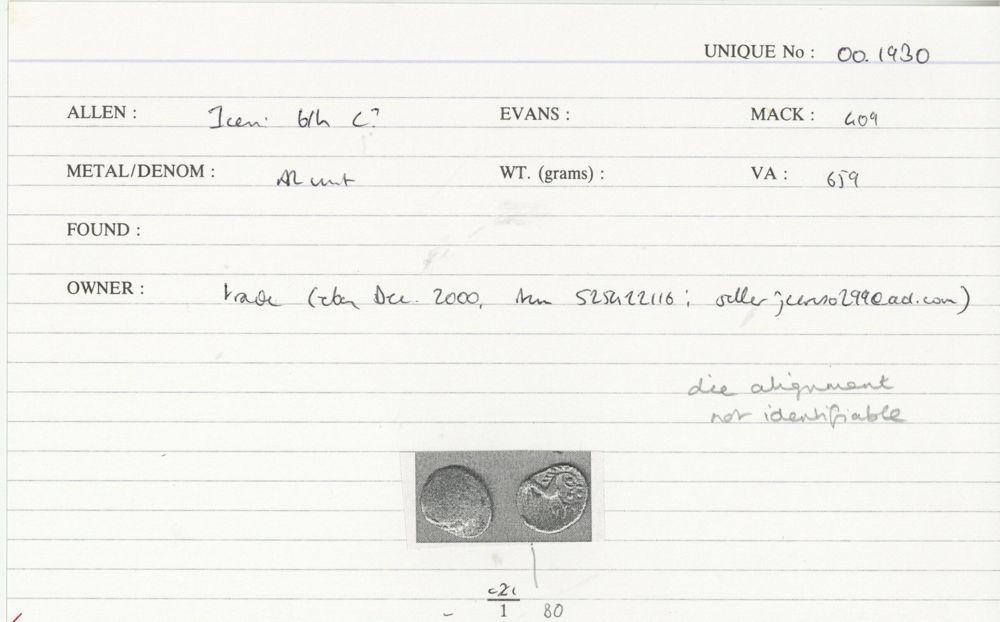 UNIQUE No : 00.1930
ALLEN : Iceni b/h C? EVANS : MACK : 409
METAL/DENOM : AR unit WT. (grams) : VA : 659
FOUND :
OWNER : trade (ebay Dec. 2000, item ; seller
die alignment
not identifiable
1 80